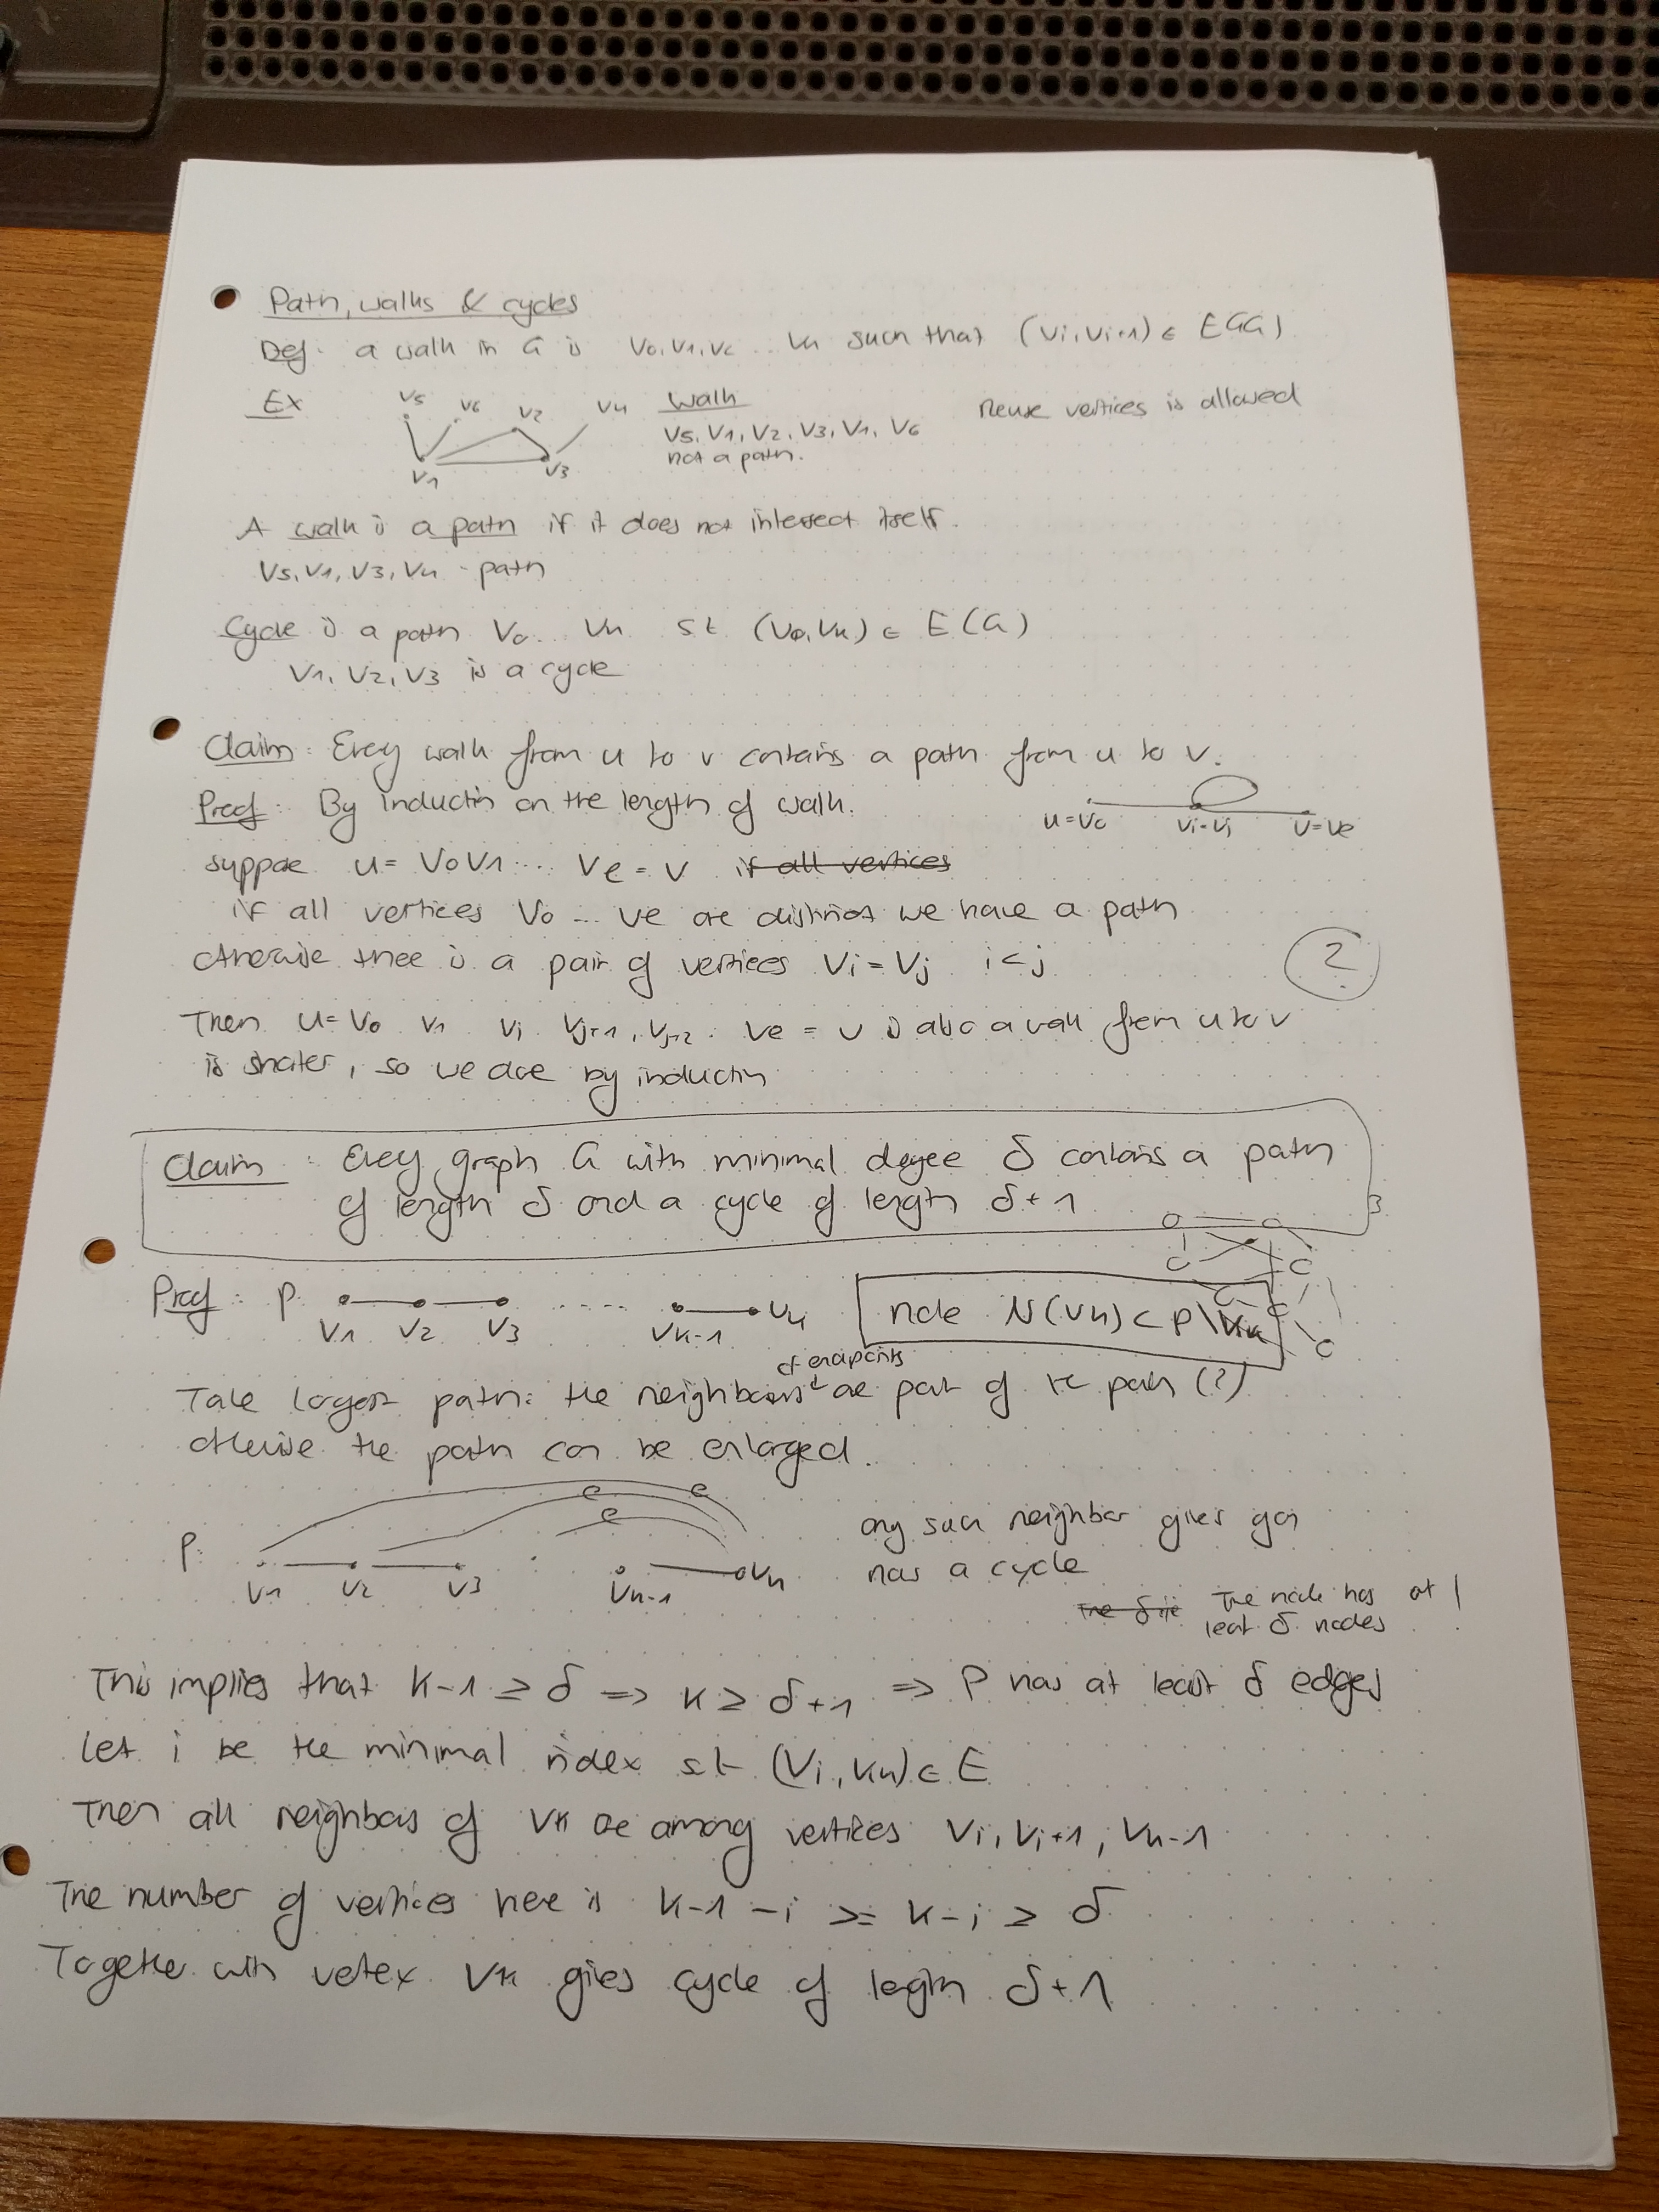 Path, walks & cycles
Def: a walk in G is v0, v1, v2 ... vk such that (vi, vi+1) ∈ E(G)
Ex
v5 v6 v2 v4
v1 v3
Walk
v5, v1, v2, v3, v1, v6
not a path.
Reuse vertices is allowed
A walk is a path if it does not intersect itself.
v5, v1, v3, v4 - path
Cycle is a path v0 ... vk st (v0, vk) ∈ E(G)
v1, v2, v3 is a cycle
Claim: Every walk from u to v contains a path from u to v.
Proof: By induction on the length of walk.
u=v0 vi=vj v=ve
suppose u = v0 v1 .... ve = v if all vertices
if all vertices v0 ... ve are distinct we have a path
otherwise there is a pair of vertices vi = vj i < j
?
Then u=v0 v1 vi vj+1, vj+2. ve = v is also a walk from u to v
is shorter, so we are by induction
Claim: Every graph G with minimal degree δ contains a path
of length δ and a cycle of length δ+1
Proof: P v1 v2 v3 ..... vk-1 vk
note N(vk) ⊂ P \ vk
Take longest path: the neighbours of endpoints are part of the path (?)
otherwise the path can be enlarged.
P: v1 v2 v3 vk-1 vk
any such neighbor gives
has a cycle
The The node has at
least δ nodes
This implies that k-1 ≥ δ => k ≥ δ+1 => P has at least δ edges
Let i be the minimal index st (vi, vk) ∈ E
Then all neighbors of vk are among vertices vi, vi+1, vk-1
The number of vertices here is k-1-i >= k-i ≥ δ
Together with vertex vk gives cycle of length δ+1